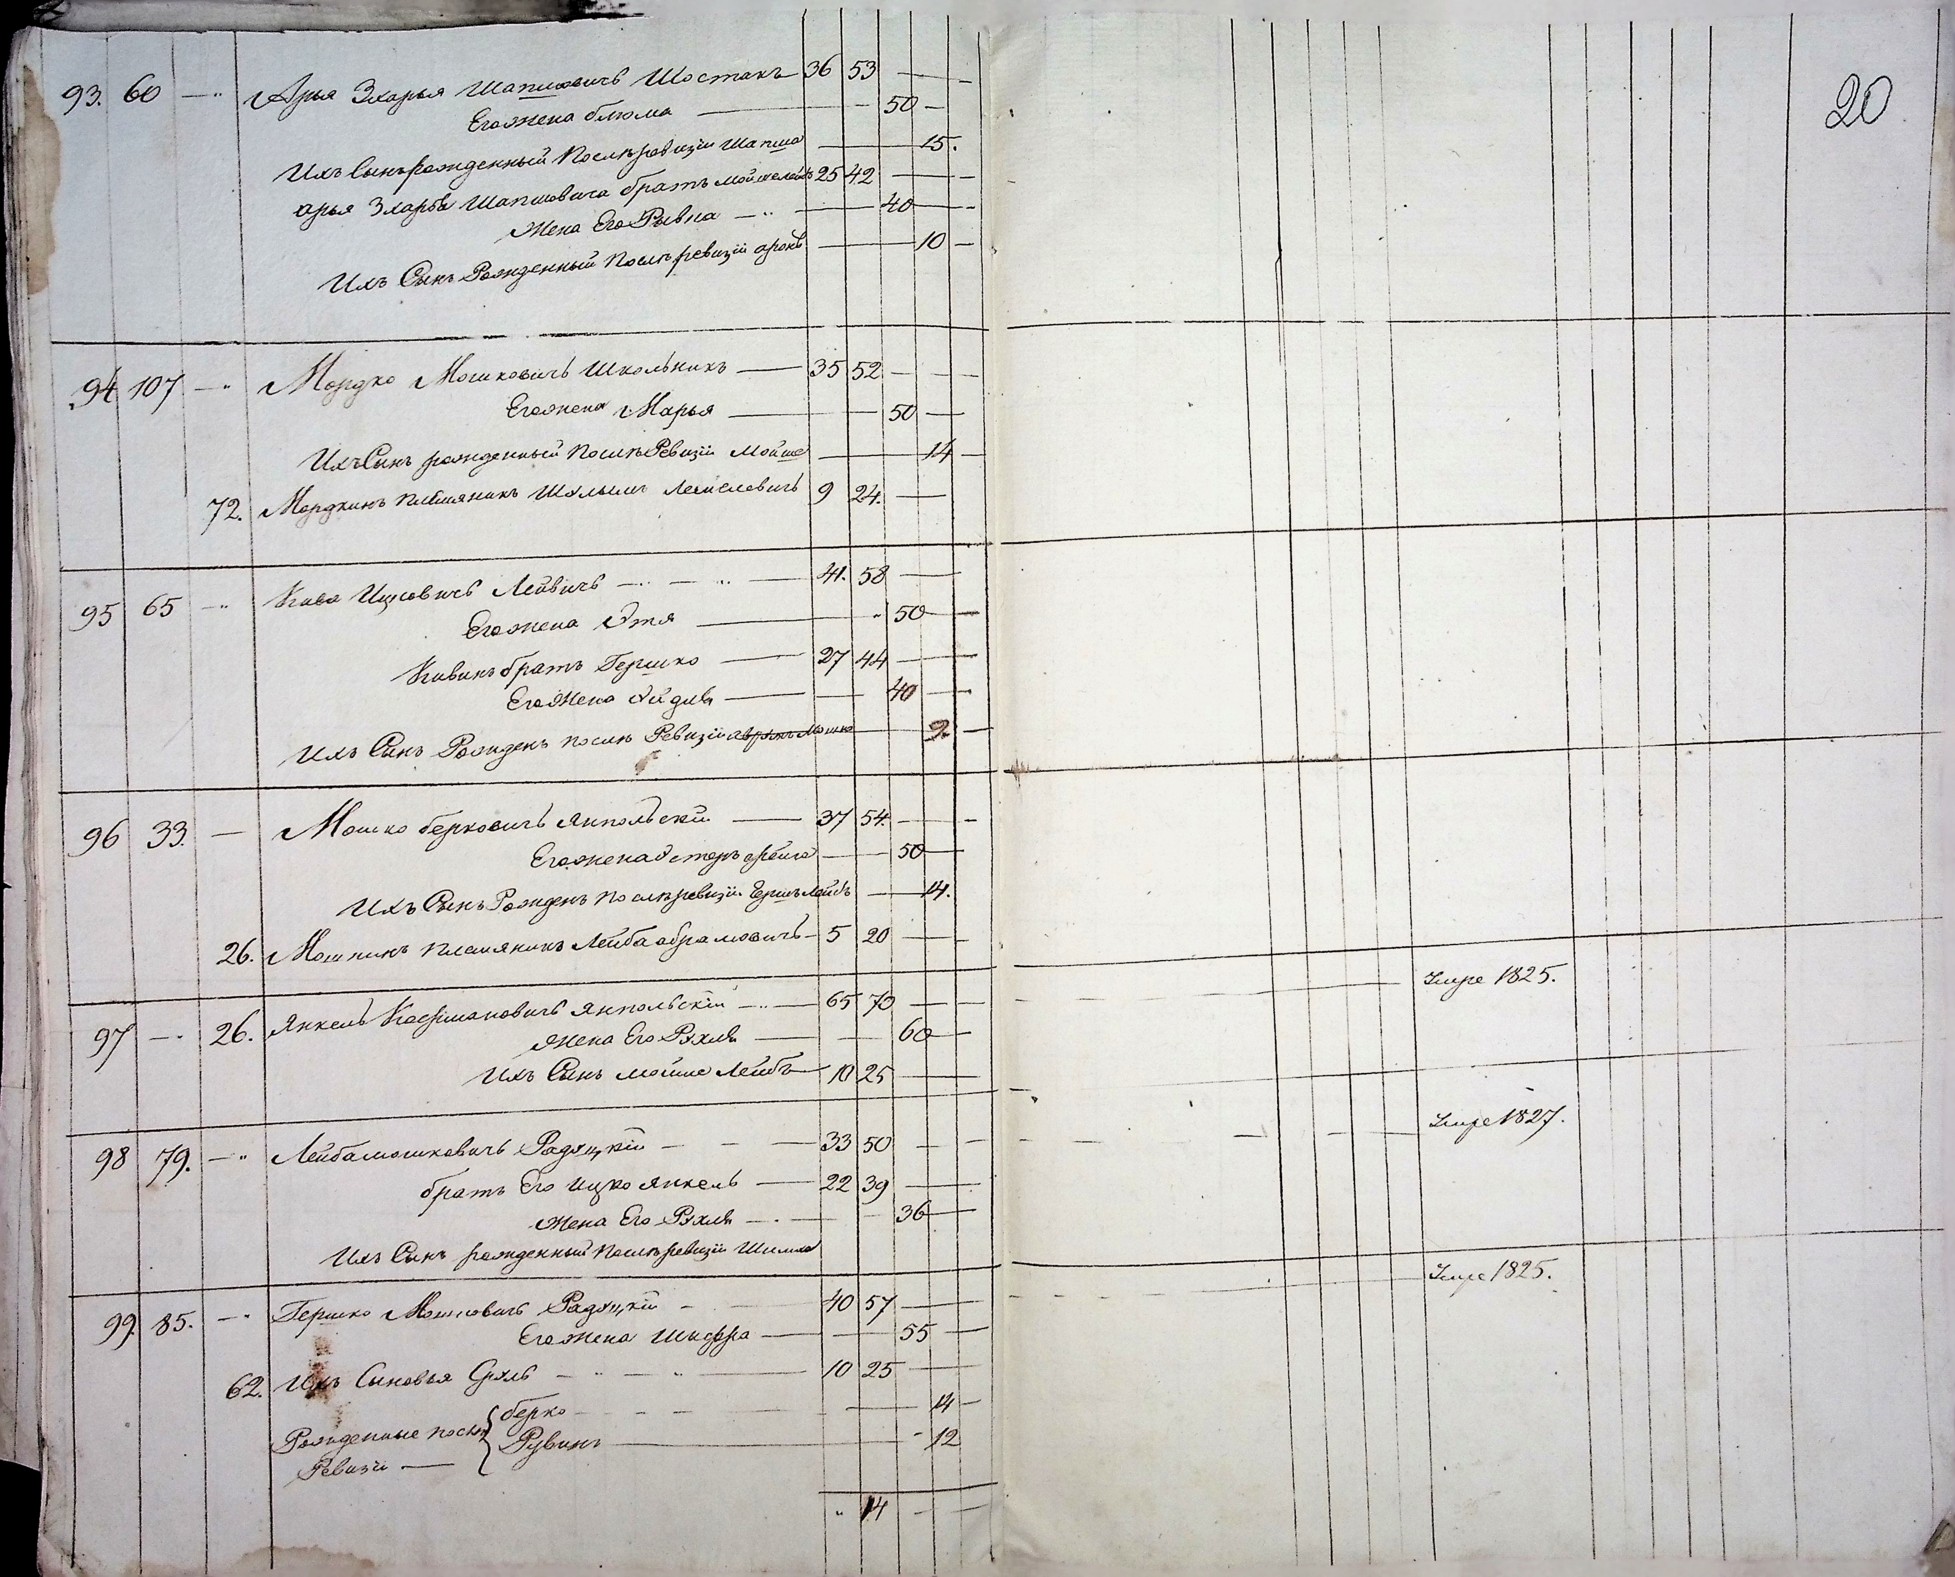 20
93. 60 — " Арья Зхарья Шапшовичъ Шостакъ 36 53 —
Его жена блюма — 50 —
Ихъ Сынъ рожденный послѣ ревизіи Шапша — 15.
арья Зхарья Шапшовича братъ 25 42 —
Жена Его Ривка — 40 —
Ихъ Сынъ Рожденный послѣ ревизіи аронъ — 10 —
94 107 — " Мордко Мошковичъ Школьникъ — 35 52 —
Его жена Марья — 50 —
Ихъ Сынъ рожденный послѣ Ревизіи Мойше — 14 —
72. Мордкинъ племяникъ 9 24. —
95 65 — " Кива Ицковичъ Лейвичъ — 41. 58 —
Его жена Этя — " 50 —
Кивинъ братъ Гершко — 27 44 —
Его Жена — 40 —
Ихъ Сынъ Рожденъ послѣ Ревизіи — 9. —
96 33. — Мошко берковичъ Янпольскій — 37 54. —
Его жена — 50 —
Ихъ Сынъ Рожденъ послѣ ревизіи Гершъ Лейбъ — 14.
26. Мошкинъ племяникъ Лейба абрамовичъ — 5 20 —
97 — 26. Янкель Янпольскій — 65 70 — 1825.
Жена Его Рухля — 60 —
Ихъ Сынъ мойше Лейбъ — 10 25 —
98 79. — " Лейба мошковичъ Радуцкій — 33 50 — 1827.
братъ Его Ицко Янкель — 22 39 —
Жена Его Рухля — 36 —
Ихъ Сынъ рожденный послѣ ревизіи
99. 85. — " Гершко Мошковичъ Радуцкій — 40 57 — 1825.
Его Жена Шифра — 55 —
62. Ихъ Сыновья Сруль — 10 25 —
Рожденные послѣ { берко — 14 —
Ревизіи — Рувинъ — 12
" 14 —